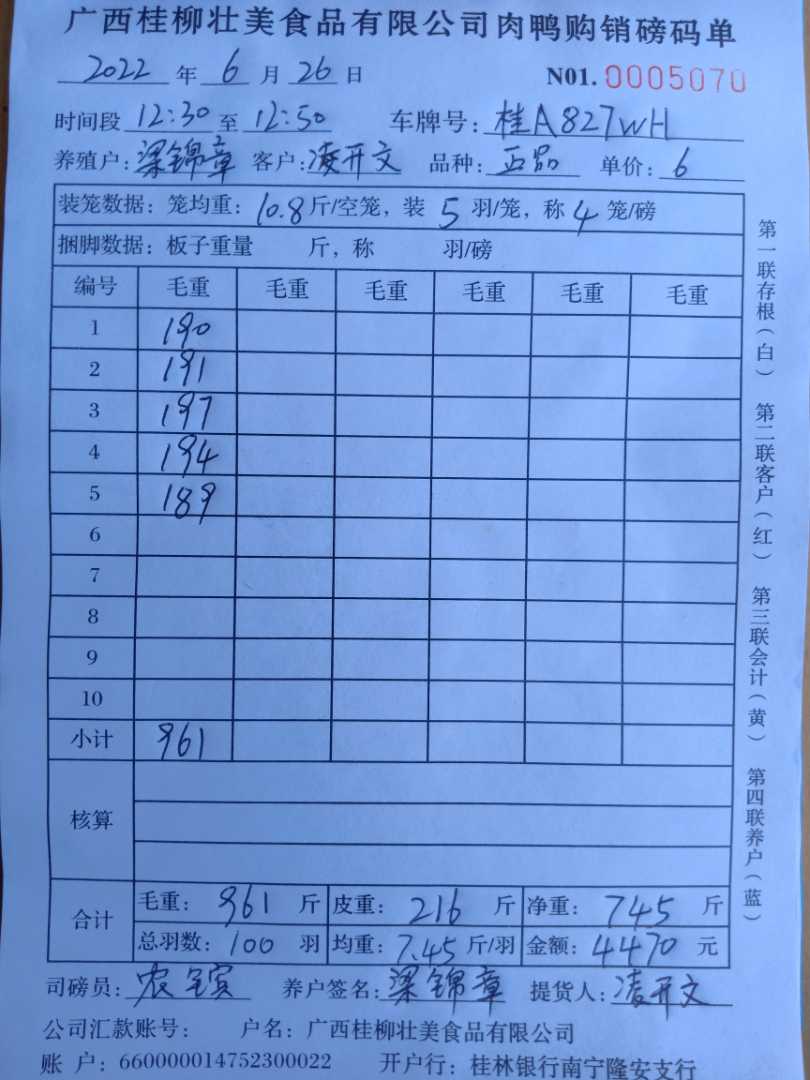 广西桂柳壮美食品有限公司肉鸭购销磅码单
2022 年 6 月 26 日 N01. 0005070
时间段 12:30 至 12:50 车牌号: 桂A827WH
养殖户: 梁锦章2 客户: 凌开文 品种: 正品 单价: 6
装笼数据: 笼均重: 10.8 斤/空笼, 装 5 羽/笼, 称 4 笼/磅
捆脚数据: 板子重量 斤, 称 羽/磅
编号 毛重 毛重 毛重 毛重 毛重 毛重
1 190
2 191
3 197
4 194
5 189
6
7
8
9
10
小计 961
核算
合计 毛重: 961 斤 皮重: 216 斤 净重: 745 斤
总羽数: 100 羽 均重: 7.45 斤/羽 金额: 4470 元
司磅员: 农宾 养户签名: 梁锦章 提货人: 凌开文
公司汇款账号: 户名: 广西桂柳壮美食品有限公司
账 户: 660000014752300022 开户行: 桂林银行南宁隆安支行
第一联存根(白) 第二联客户(红) 第三联会计(黄) 第四联养户(蓝)